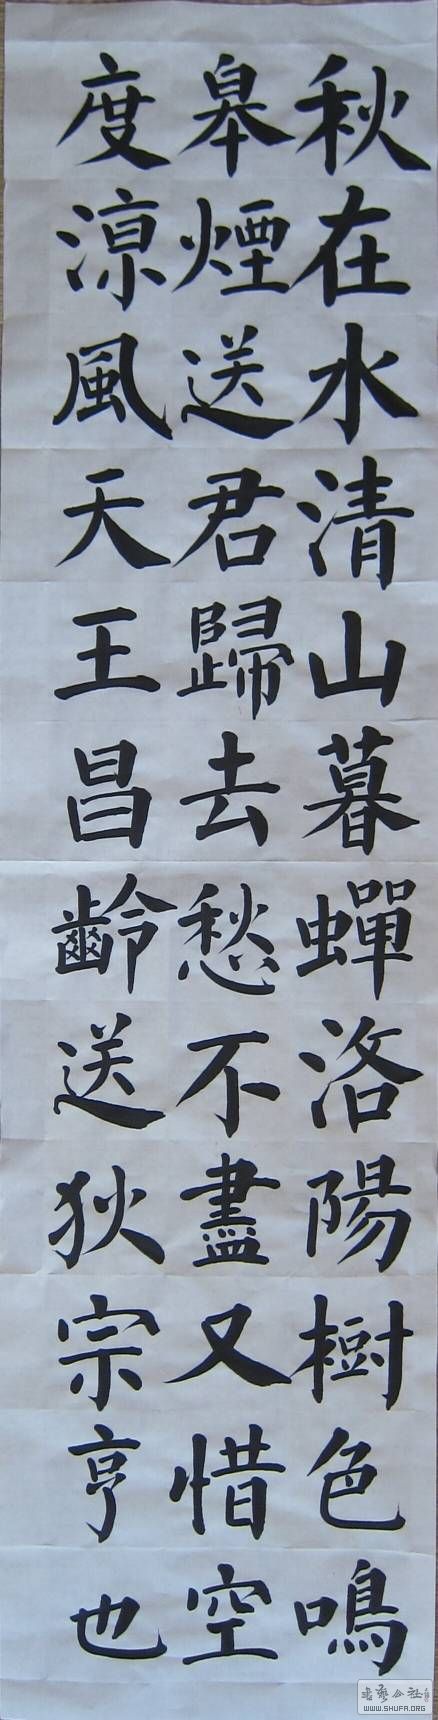 秋在水清山暮蟬洛陽樹色鳴
皋煙送君歸去愁不盡又惜空
度涼風天王昌齡送狄宗亨也
WWW.SHUFA.ORG